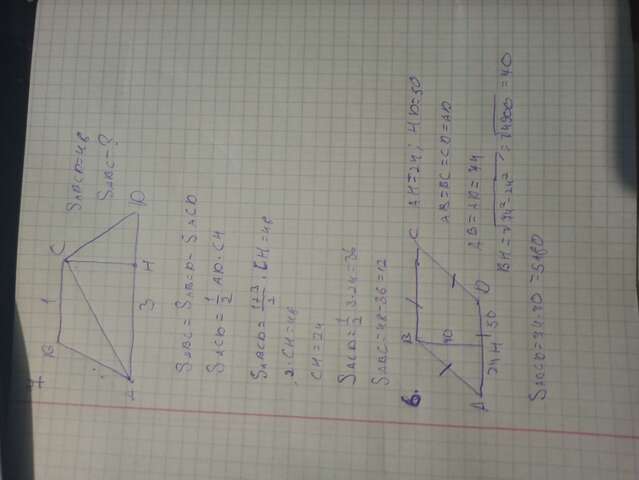 7.
B 1 C
A 3 H D
SABCD=48
SABC=?
SABC=SABCD-SACD
SACD=1/2 AD·CH
SABCD=1+3/2·CH=48
2·CH=48
CH=24
SACD=1/2 3·24=36
SABC=48-36=12
6.
B C
40
A 24 H 50 D
AH=24; HD=50
AB=BC=CD=AD
AB=AD=74
BH=√74²-24²=√4900=70